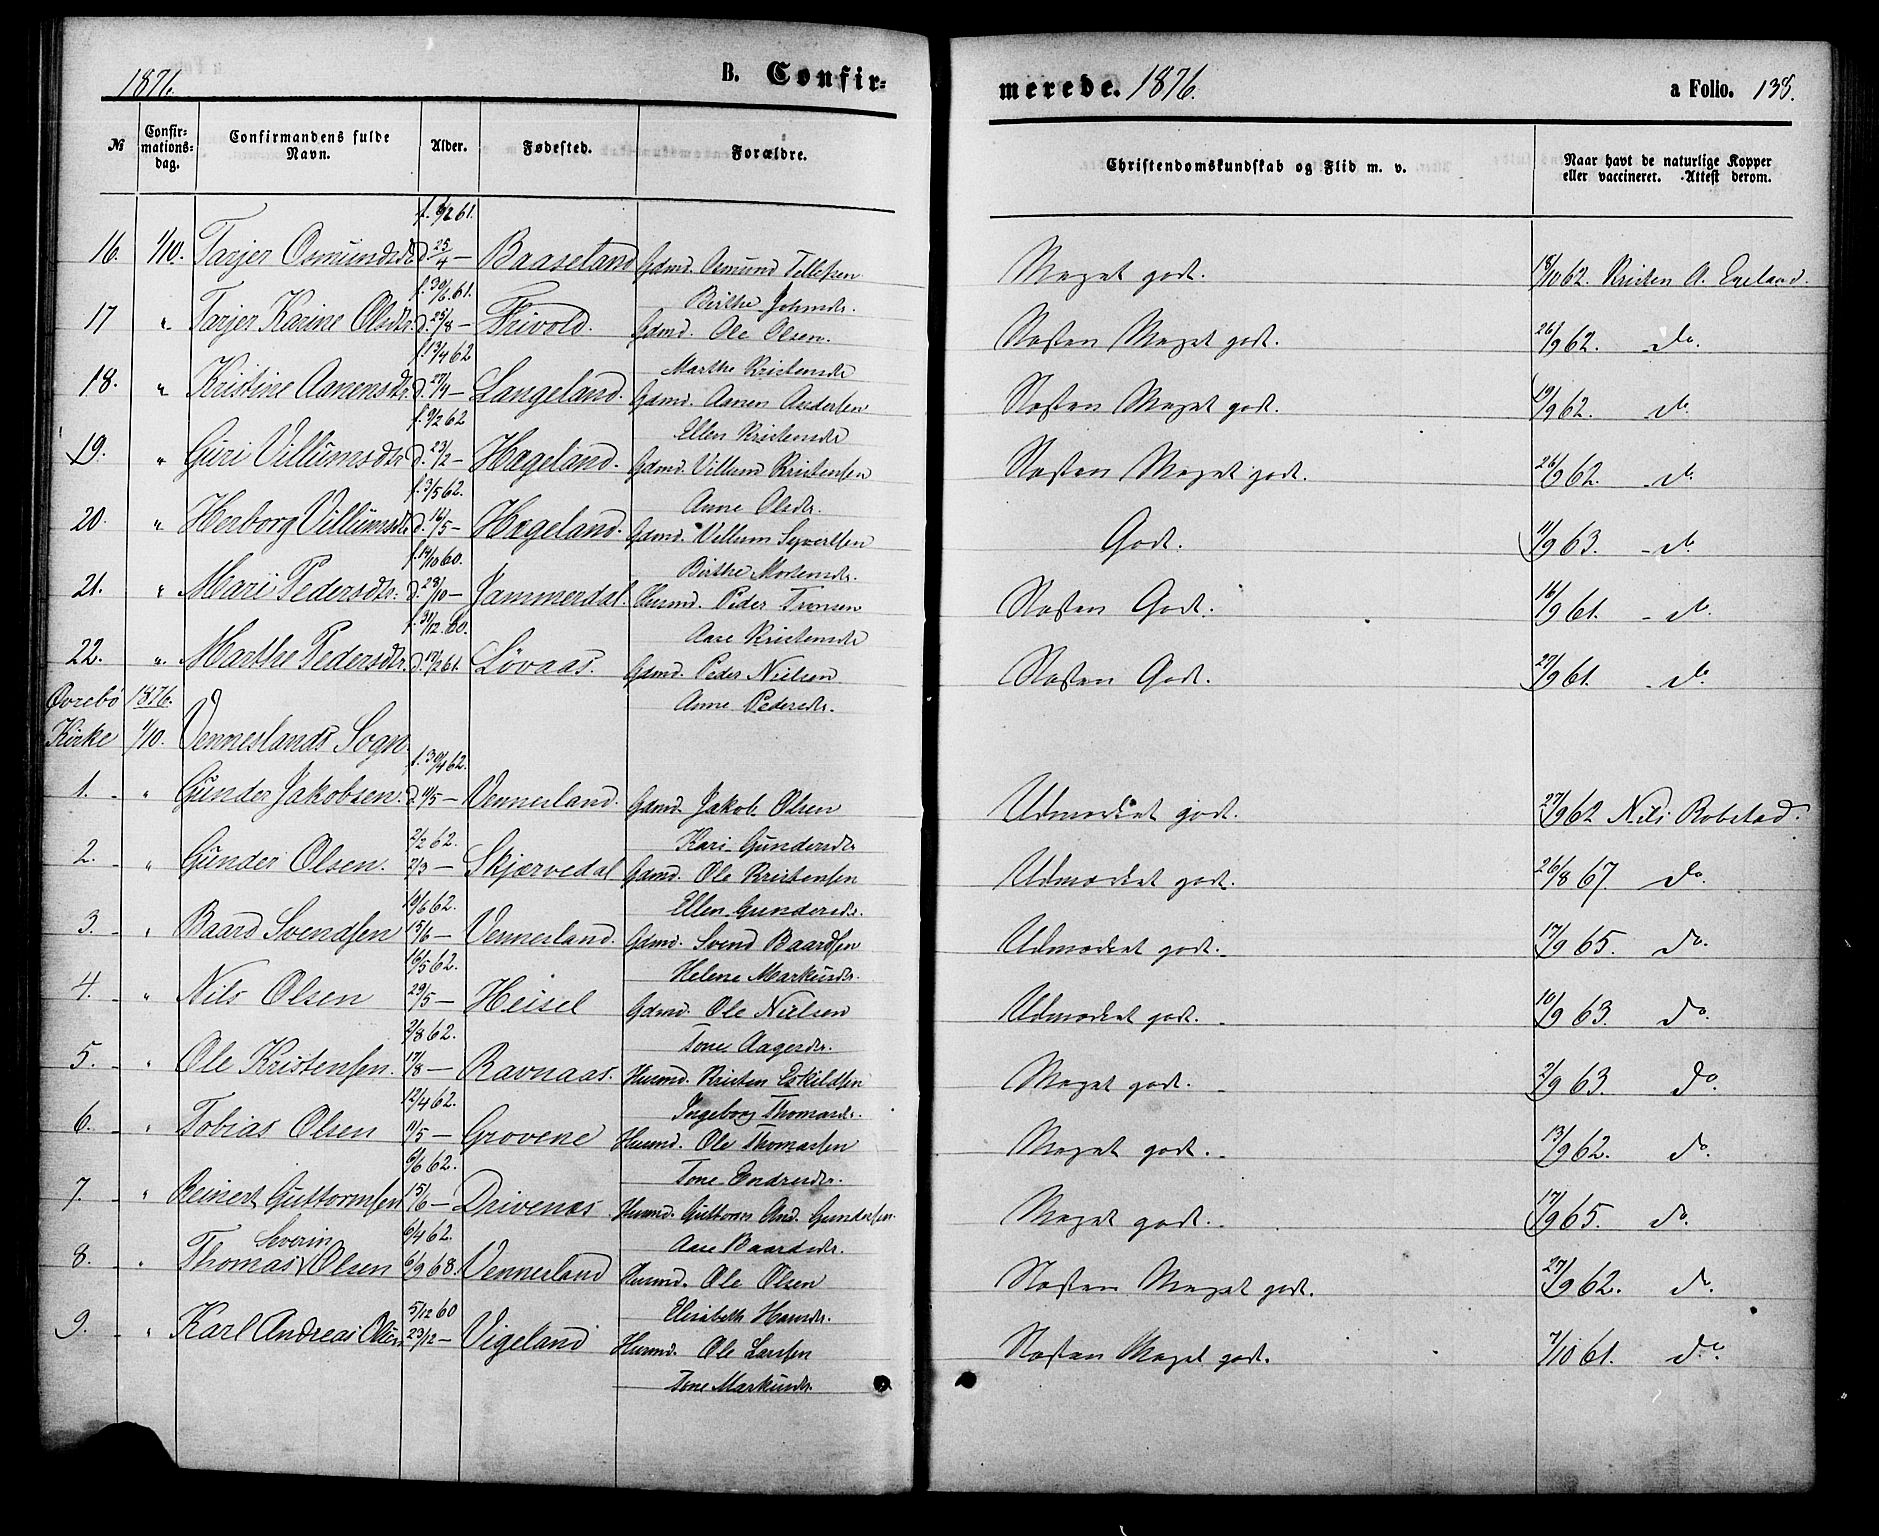 1876.
B. Confir-
merede. 1876.
a Folio. 138.
№ Confir-mations-dag. Confirmandens fulde Navn. Alder. Fødested. Forældre. Christendomskundskab og Flid m. v. Naar havt de naturlige Kopper eller vaccineret. Attest derom.
f. 6/2 61.
16. 1/10. Tarjer Osmundsdr d. 25/4 — Baaseland Gdmd. Osmund Tellefsen Meget godt. 18/10 62. Kristen A. Egeland.
f. 30/6 61. Birthe Johnsdr.
17 " Tarjer Karine Olsdr. d. 25/8 — Frivold. Gdmd. Ole Olsen. Næsten Meget godt. 26/9 62. do.
f. 13/4 62 Marthe Kristensdr
18. " Kristine Aanensdtr. d. 27/4 — Langeland. Gdmd. Aanen Andersen Næsten Meget godt. 19/9 62. do
f. 9/2 62 Ellen Kristensdr
19. " Guri Villumsdtr d. 23/2 — Hægeland. Gdmd. Villum Kristensen Næsten Meget godt. 26/9 62. do
f. 3/5 62. Anne Olsdr.
20. " Herborg Villumsdtr d. 16/5 — Hægeland. Gdmd. Villum Syvertsen Godt. 11/9 63. do
f. 14/10 60. Birthe Mortensdr.
21. " Mari Pedersdtr. d. 28/10 — Jammerdal. Husmd. Peder Tronsen Næsten Godt. 16/9 61. do.
f. 31/12 60. Aase Kristensdr
22. " Marthe Pedersdtr. d. 17/2 61. Løvaas. Gdmd. Peder Nielsen Næsten Godt. 27/9 61. do.
Øvrebö 1876. Anne Pedersdr.
Kirke 1/10. Venneslands Sogn.
f. 30/4 62.
1. " Gunder Jakobsen. d. 11/5 — Vennesland. Gdmd. Jakob Olsen Udmærket godt. 27/9 62 Nils Robstad.
2/2 62. Kari Gundersdr
2. " Gunder Olsen. 2/3 — Skjærvedal Gdmd. Ole Kristensen Udmærket godt. 26/8 67. do.
19/6 62. Ellen Gundersdr.
3. " Baard Svendsen 15/6 — Vennesland. Gdmd. Svend Baardsen Udmærket godt. 17/9 65. do.
16/5 62. Helene Markusdr.
4. " Nils Olsen 29/5 — Heisel Gdmd. Ole Nielsen Udmærket godt. 10/9 63. do.
2/8 62. Tone Aagesdr.
5. " Ole Kristensen. 17/8 — Ravnaas. Husmd. Kristen Eskildsen Meget godt. 2/9 63. do.
12/4 62. Ingeborg Thomasdr.
6. " Tobias Olsen 11/5 — Grovene Husmd. Ole Thomassen Meget godt. 13/9 62. do.
6/6 62. Tone Endresdr.
7. " Reinert Guttormsen 15/6 — Drivenes Husmd. Guttorm And. Gundersen. Meget godt. 17/9 65. do.
Severin 6/4 62. Aase Baardsdr.
8. " Thomas Olsen 6/9 68. Vennesland Husmd. Ole Olsen Næsten Meget godt. 27/9 62. do.
5/12 60 Elisabeth Hansdr.
9. " Karl Andreas Olsen 23/12 — Vigeland Husmd. Ole Larsen Næsten Meget godt. 7/10 61. do.
Tone Markusdr.